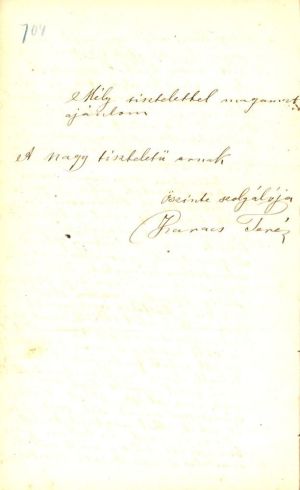 704
Mély tisztelettel magamat
ajánlom
A nagy tiszteletü urnak
őszinte szolgálója
Karacs Teréz